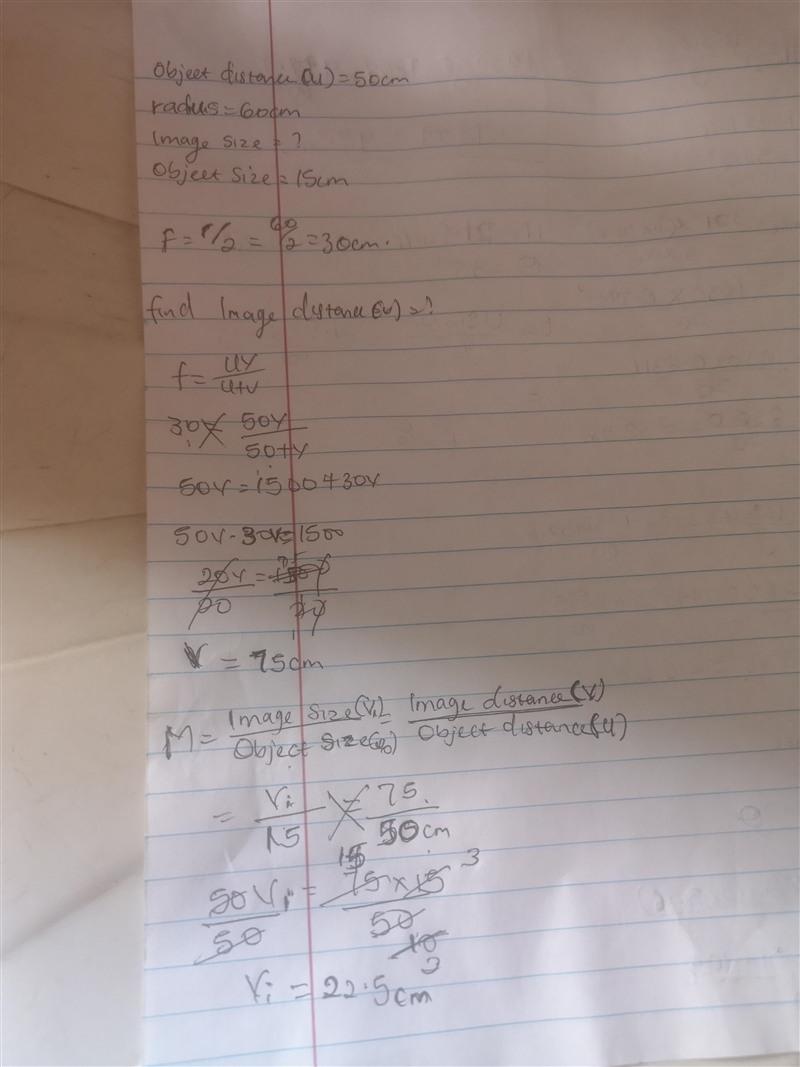 Object distance (u) = 50cm
radius = 60cm
Image size = ?
Object size = 15cm
F = r/2 = 60/2 = 30cm.
find Image distance (v) = ?
f = uv/u+v
30 = 50v/50+v
50v = 1500 + 30v
50v - 30v = 1500
20v/20 = 1500/20
V = 75cm
M = Image size(Vi)/Object size(Vo) = Image distance(v)/Object distance(u)
= Vi/15 = 75/50cm
15 3
50Vi/50 = 75 x 15/50
10
2
Vi = 22.5cm